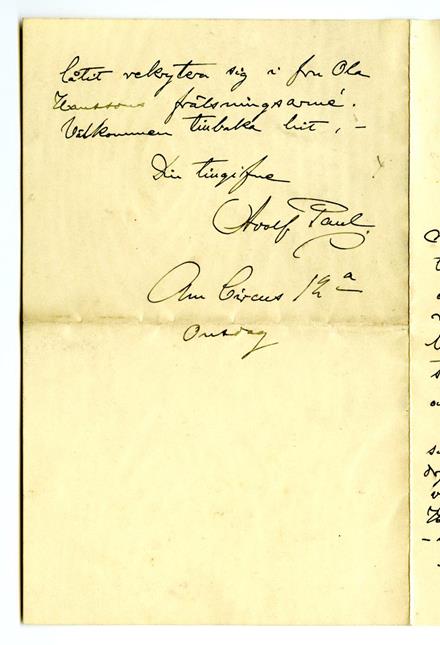 låtit rekrytera sig i fru Ola
Hanssons frälsningsarmé.
Välkommen tillbaka hit, –
Din tillgifne
Adolf Paul.
Am Circus 12a
Onsdag